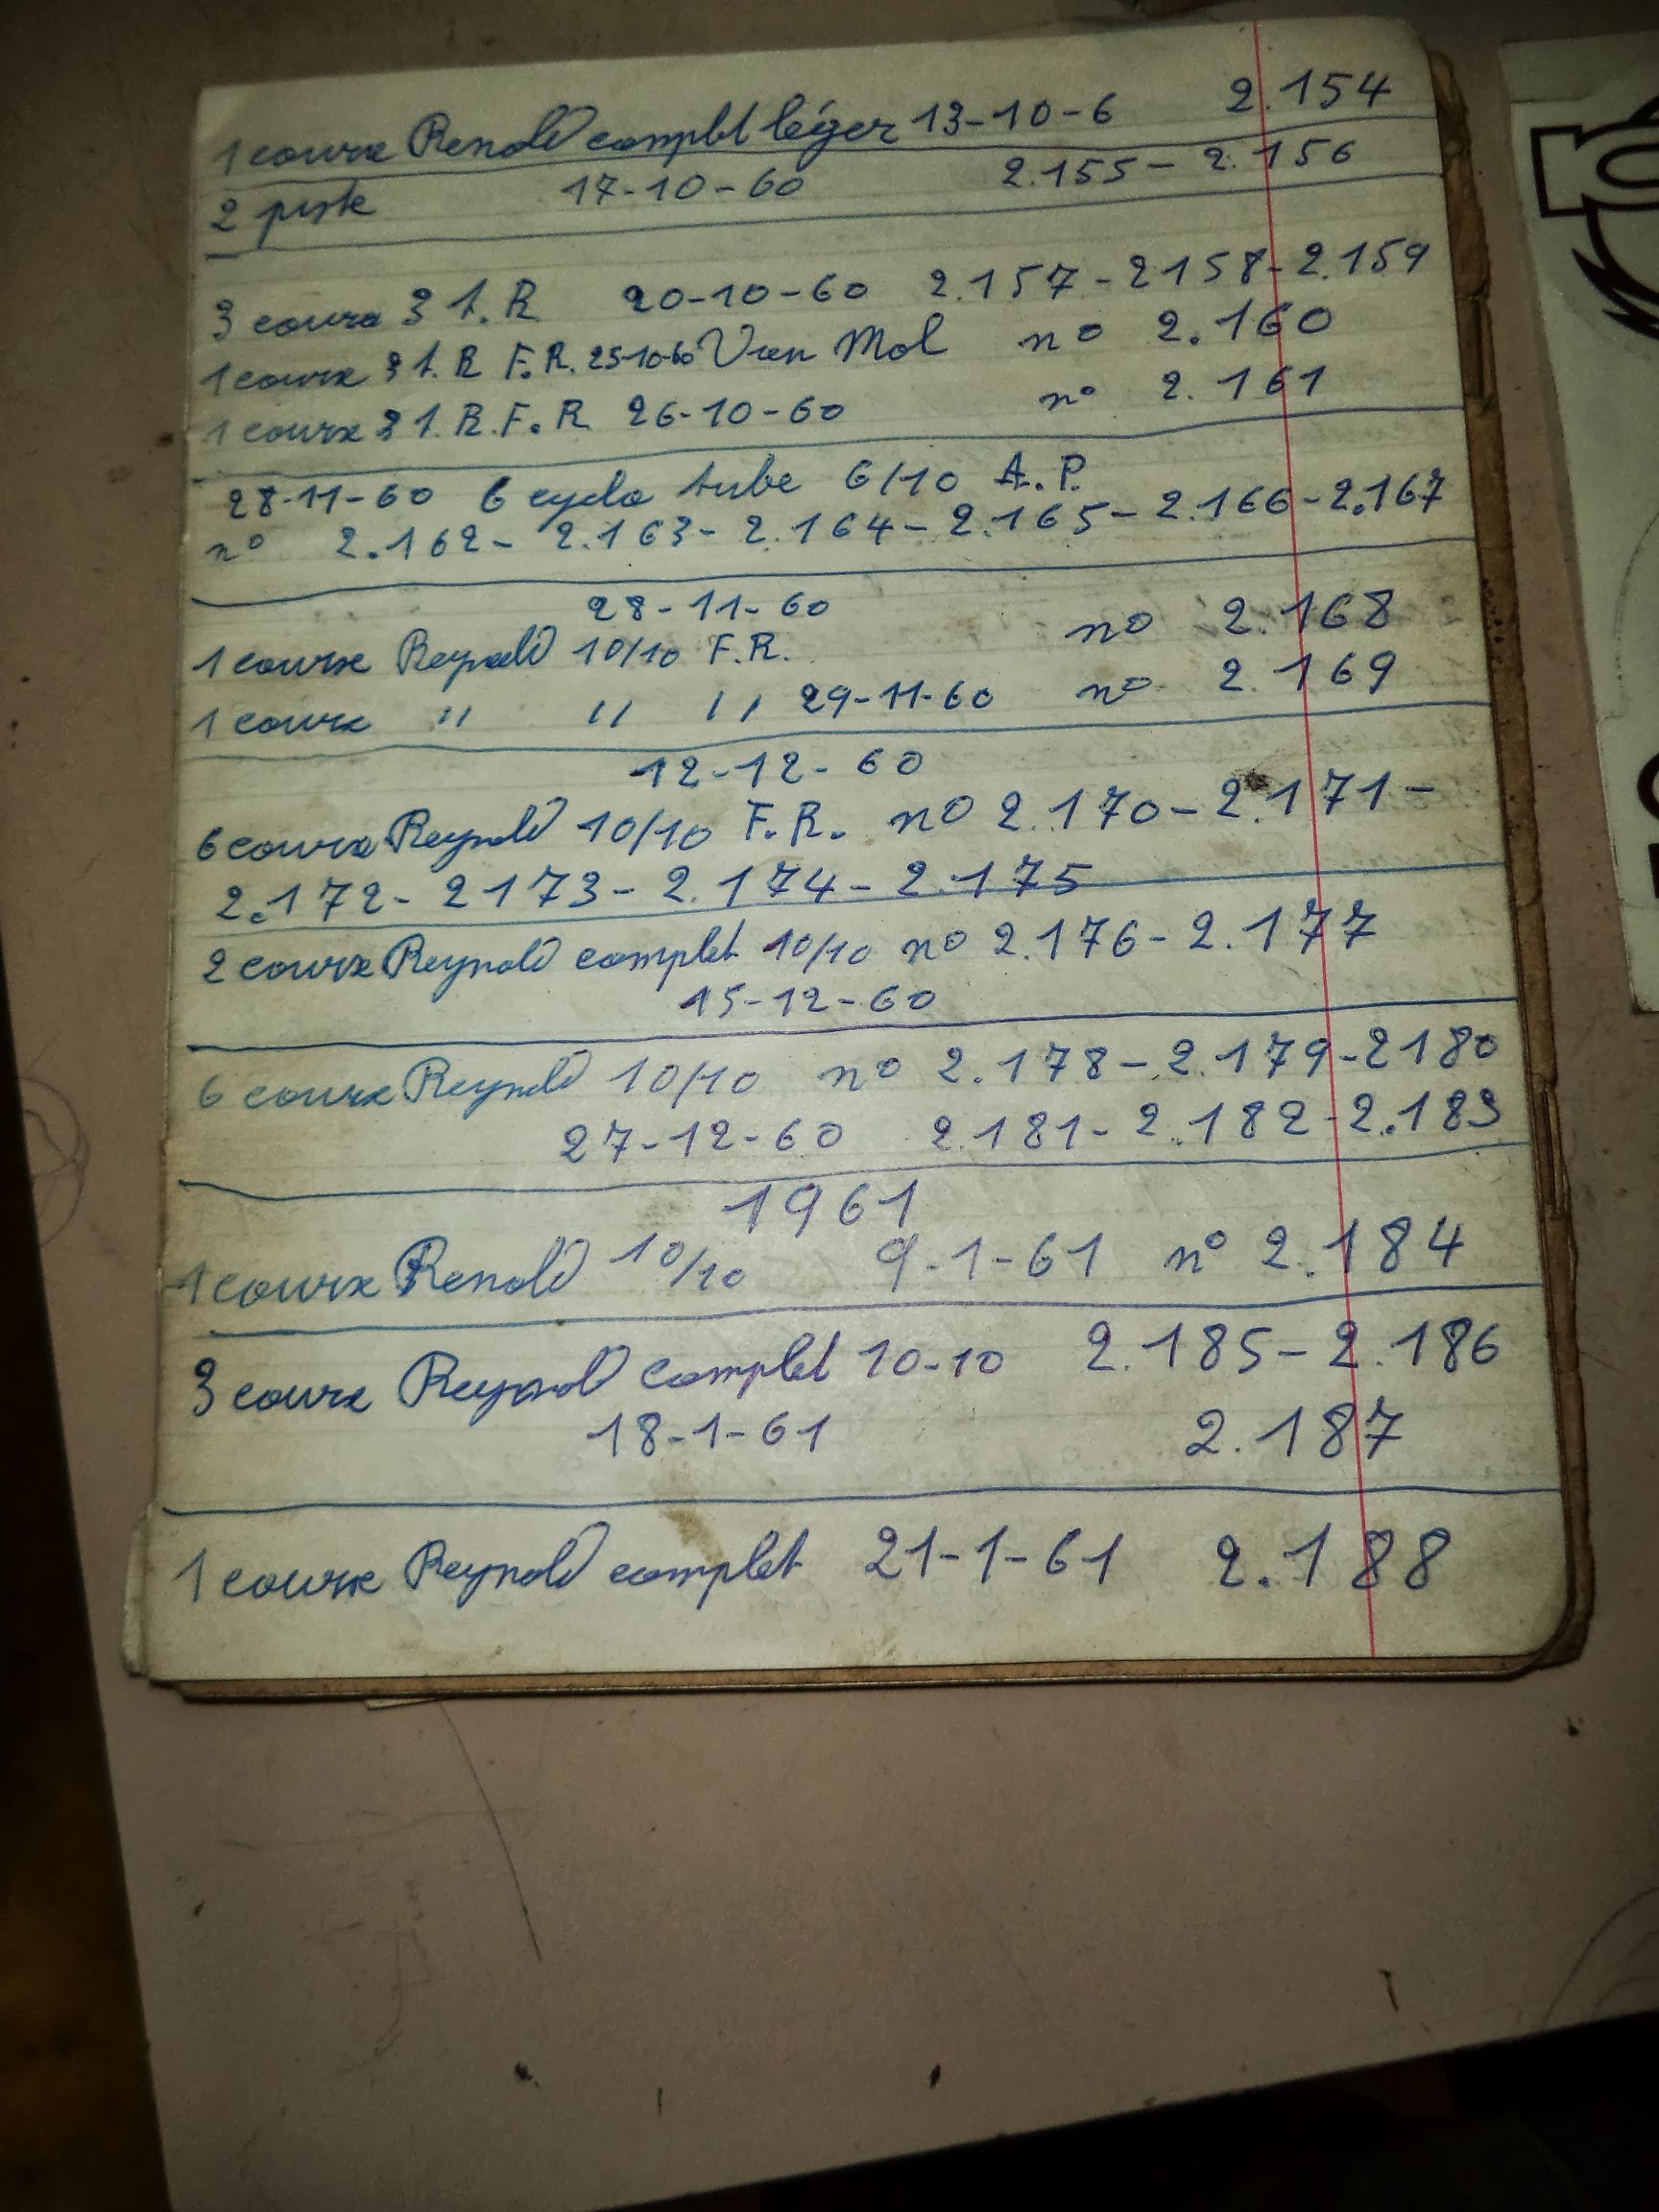 1 course Renold complet léger 13-10-6 2.154
2 piste 17-10-60 2.155-2.156
3 course 3 t.R 20-10-60 2.157-2158-2.159
1 course 3 t.R F.R. 25-10-60 Van Mol no 2.160
1 course 3 t.R.F.R 26-10-60 no 2.161
28-11-60 6 cyclo tube 6/10 A.P.
no 2.162-2.163-2.164-2.165-2.166-2.167
28-11-60
1 course Reynold 10/10 F.R. no 2.168
1 course " " " 29-11-60 no 2.169
12-12-60
6 course Reynold 10/10 F.R. no 2.170-2.171-
2.172-2173-2.174-2.175
2 course Reynold complet 10/10 no 2.176-2.177
15-12-60
6 course Reynold 10/10 no 2.178-2.179-2180
27-12-60 2.181-2.182-2.183
1961
1 course Renold 10/10 9-1-61 no 2.184
3 course Reynold complet 10-10 2.185-2.186
18-1-61 2.187
1 course Reynold complet 21-1-61 2.188